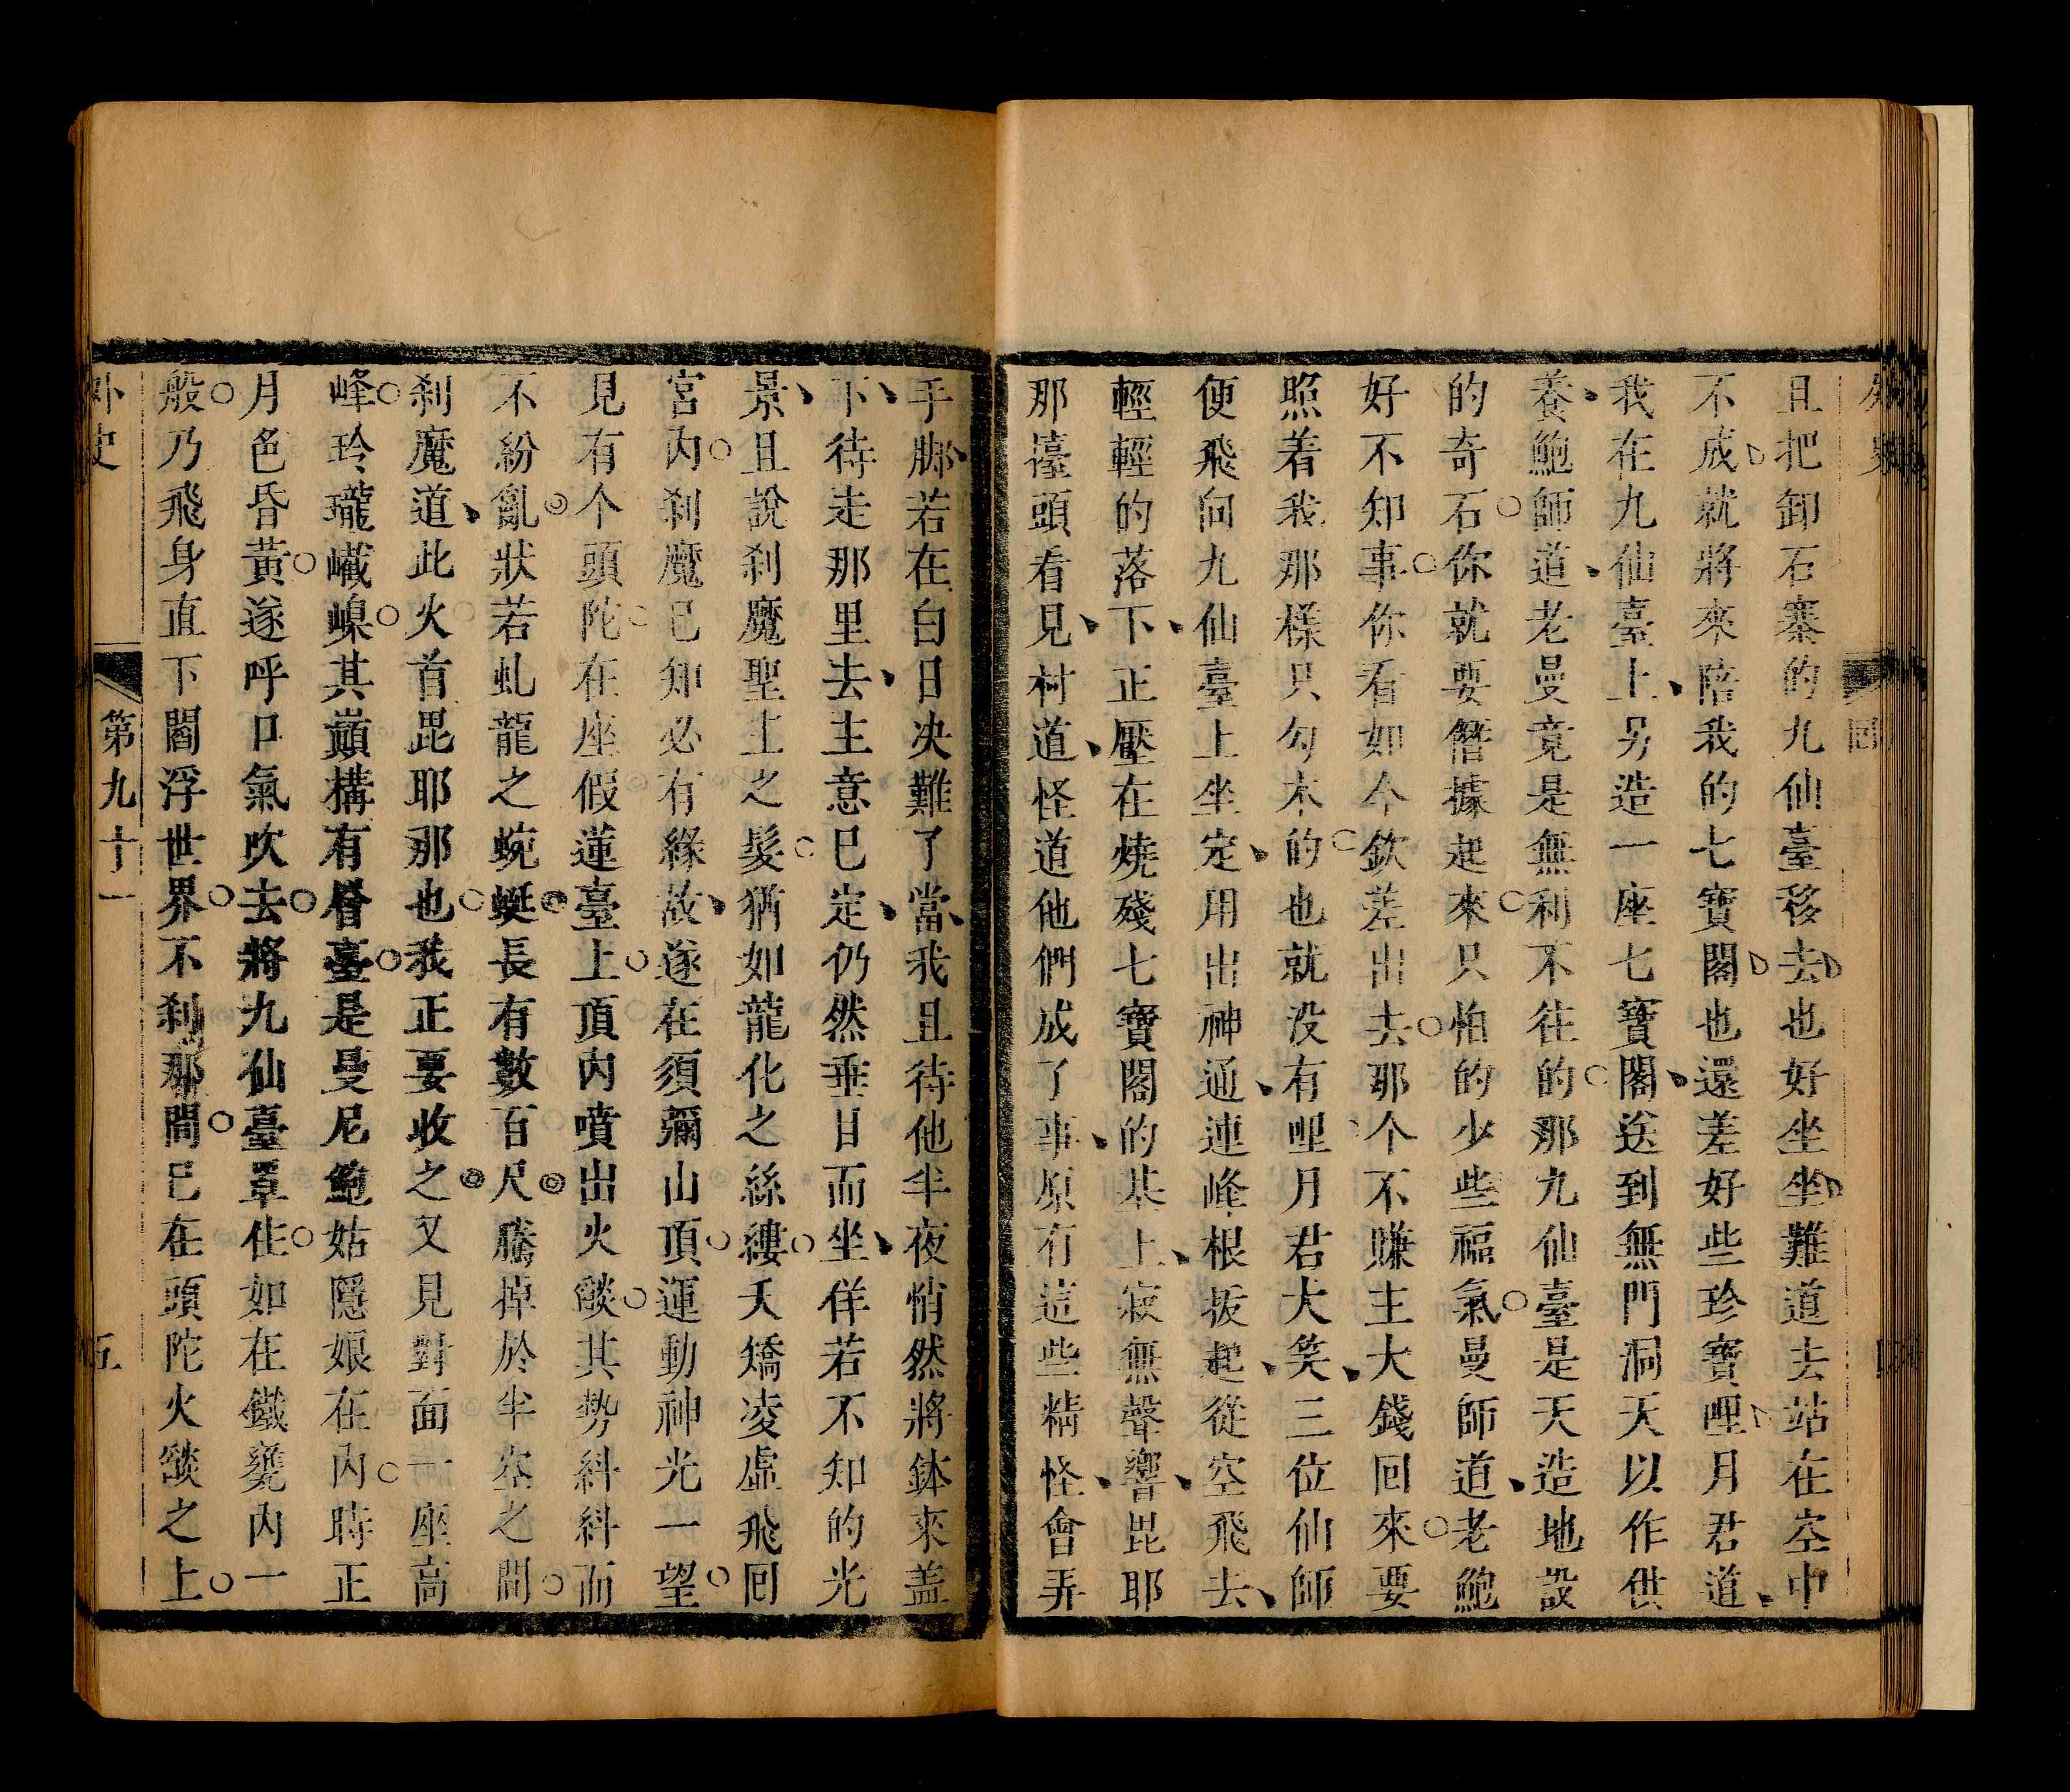 外史
回
且把卸石寨的九仙臺移去也好坐坐難道去站在空中
不成就將來陪我的七寶閣也還差好些珍寶哩月君道
我在九仙臺上另造一座七寶閣送到無門洞天以作供
養鮑師道老曼竟是無利不往的那九仙臺是天造地設
的奇石你就要僭據起來只怕的少些福氣曼師道老鮑
好不知事你看如今欽差出去那个不賺主大錢回來要
照着我那樣只勾本的也就没有哩月君大笑三位仙師
便飛向九仙臺上坐定用出神通連峰根拔起從空飛去
輕輕的落下正壓在燒殘七寶閣的基上寂無聲響毘耶
那擡頭看見忖道怪道他們成了事原有這些精怪會弄
手脚若在白日决難了當我且待他半夜悄然將鉢來盖
下待走那里去主意已定仍然垂目而坐佯若不知的光
景且說刹魔聖主之髮猶如龍化之絲縷夭矯凌虛飛回
宮内刹魔已知必有緣故遂在須彌山頂運動神光一望
見有个頭陀在座假蓮臺上頂内噴出火燄其勢糾糾而
不紛亂狀若虬龍之蜿蜒長有數百尺騰掉於半空之間
刹魔道此火首毘耶那也我正要收之又見對面一座高
峰玲瓏巀嵲其巔構有層臺是曼尼鮑姑隱娘在内時正
月色昏黃遂呼口氣吹去將九仙臺罩住如在鐵甕内一
般乃飛身直下閻浮世界不刹那間已在頭陀火燄之上
外史
第九十一
五